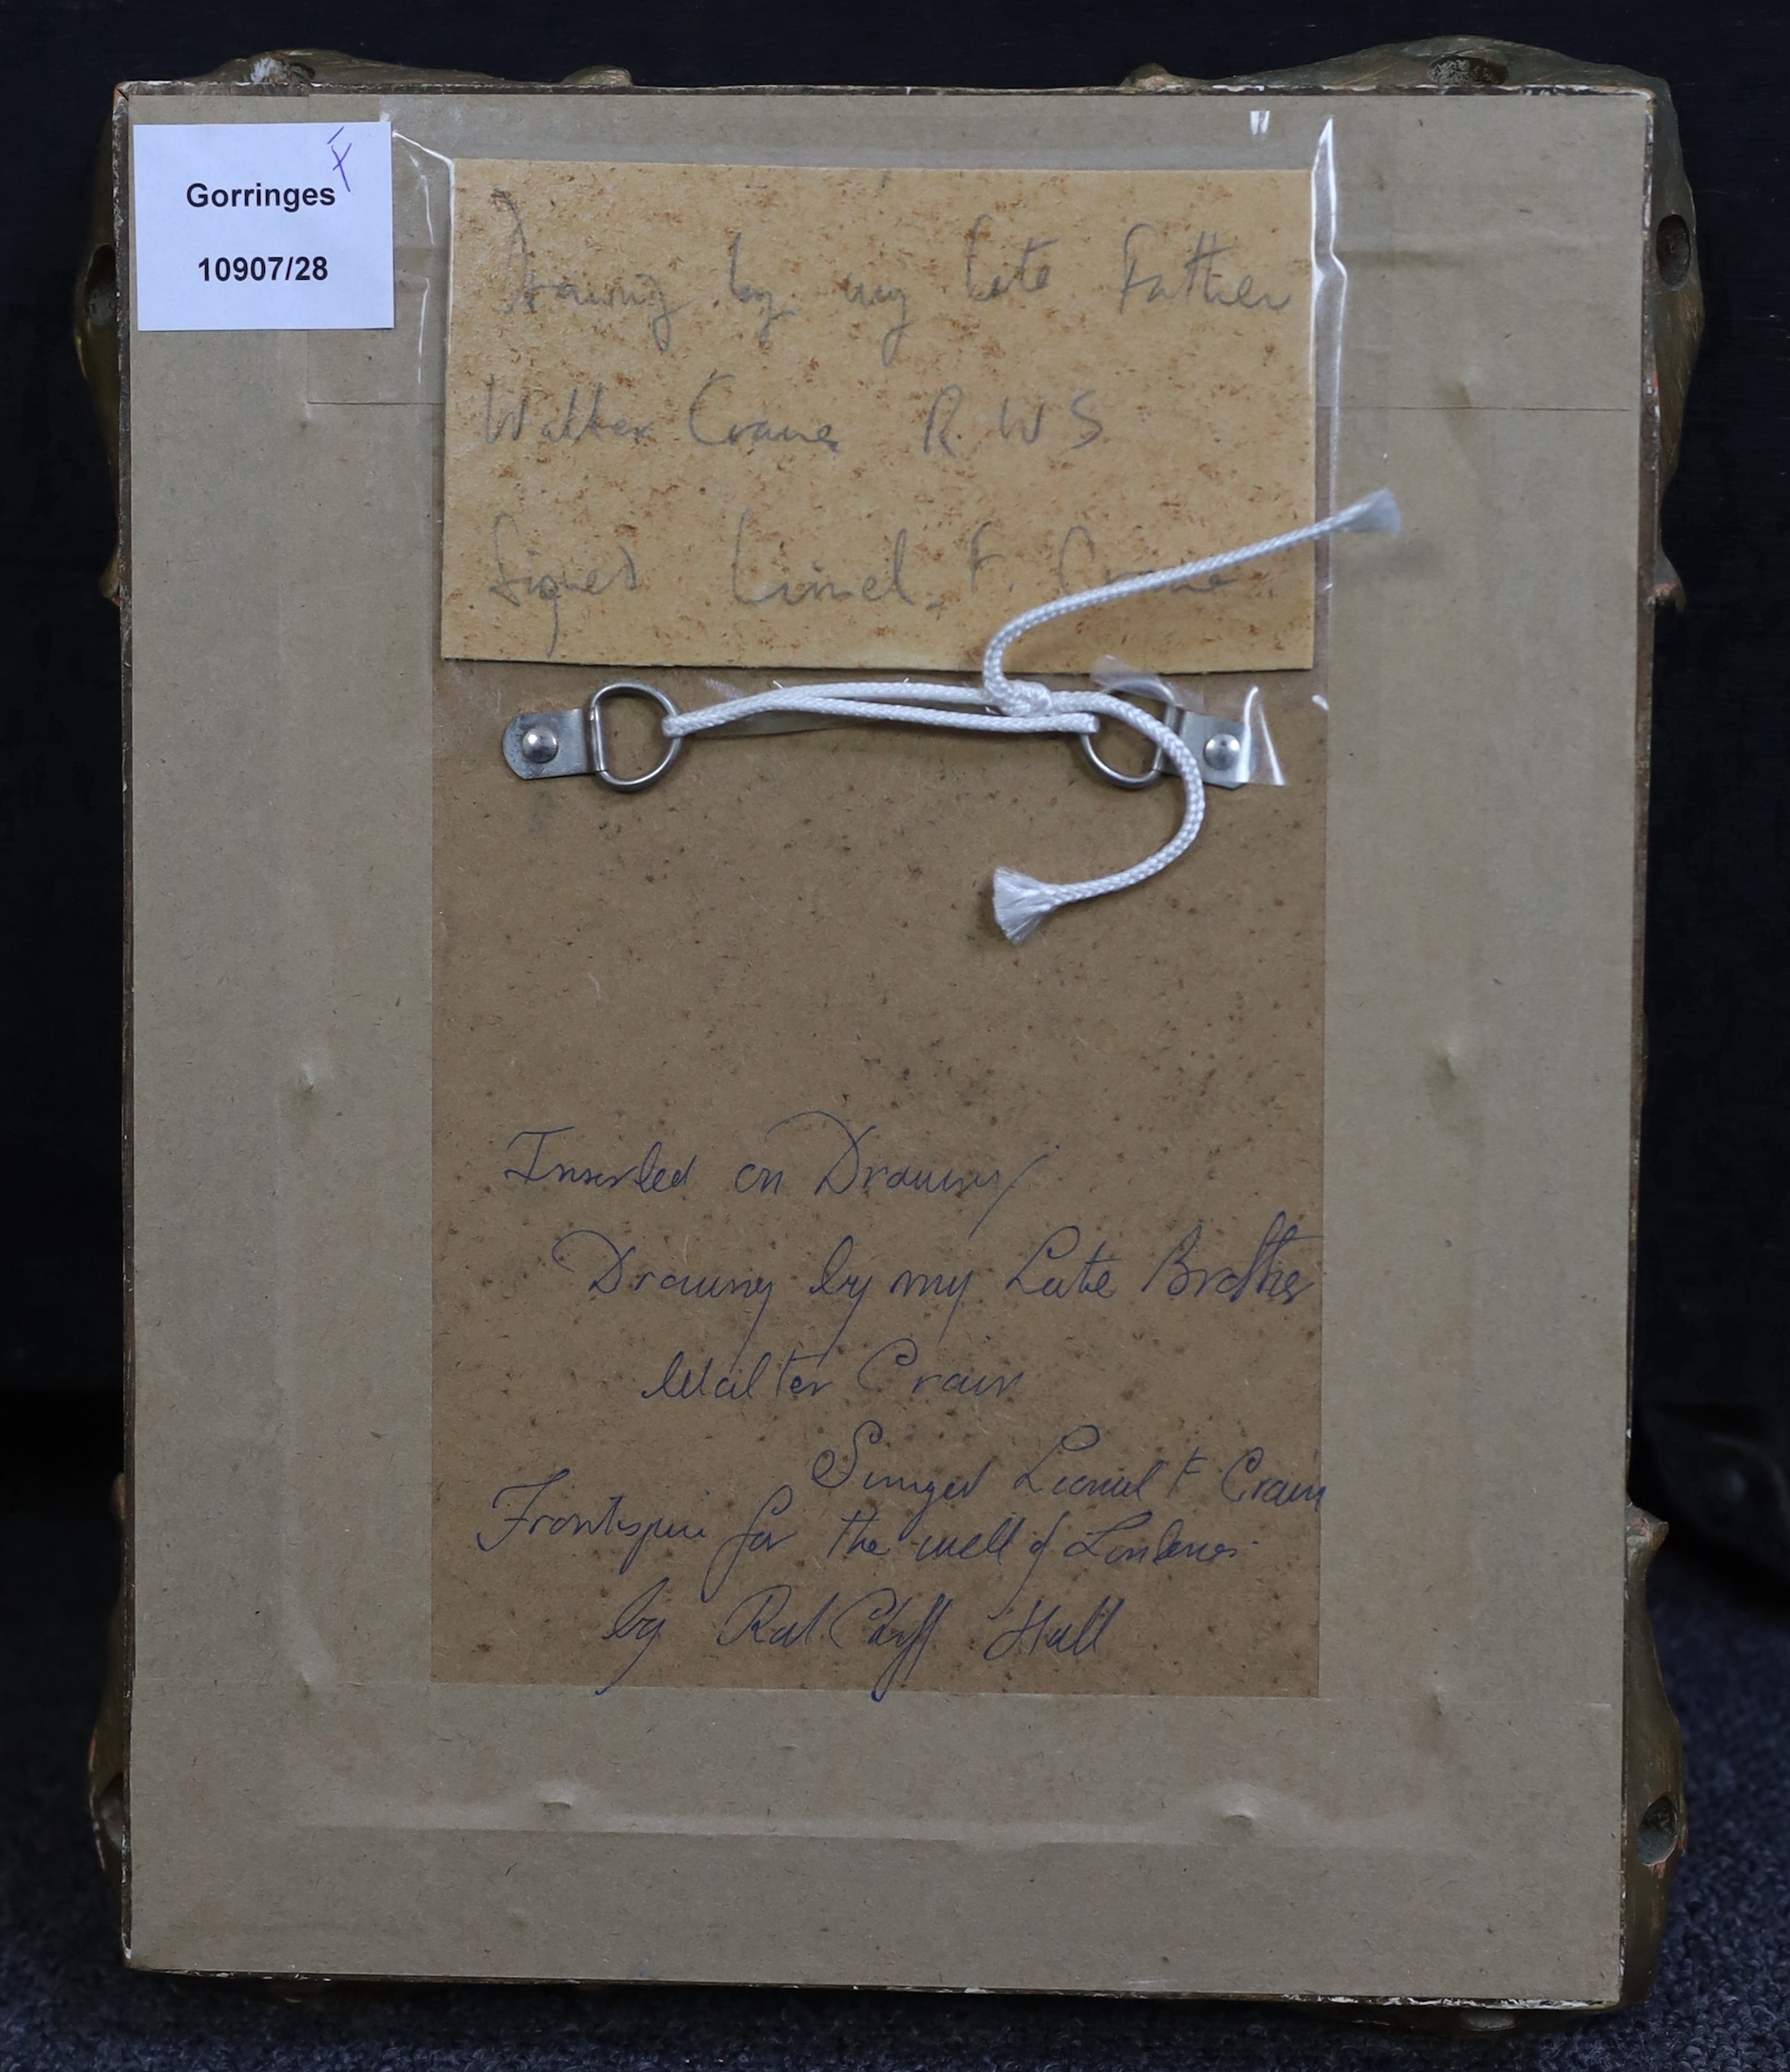 F
Gorringes
10907/28
Drawing by my late Father
Walter Crane R.W S
Signed Lionel. F. Crane
Inserted on Drawing
Drawing by my Late Brother
Walter Crane
Singed Lionel F Crane
Frontispiece for the well of Lonlenes
by RatClyff Hall